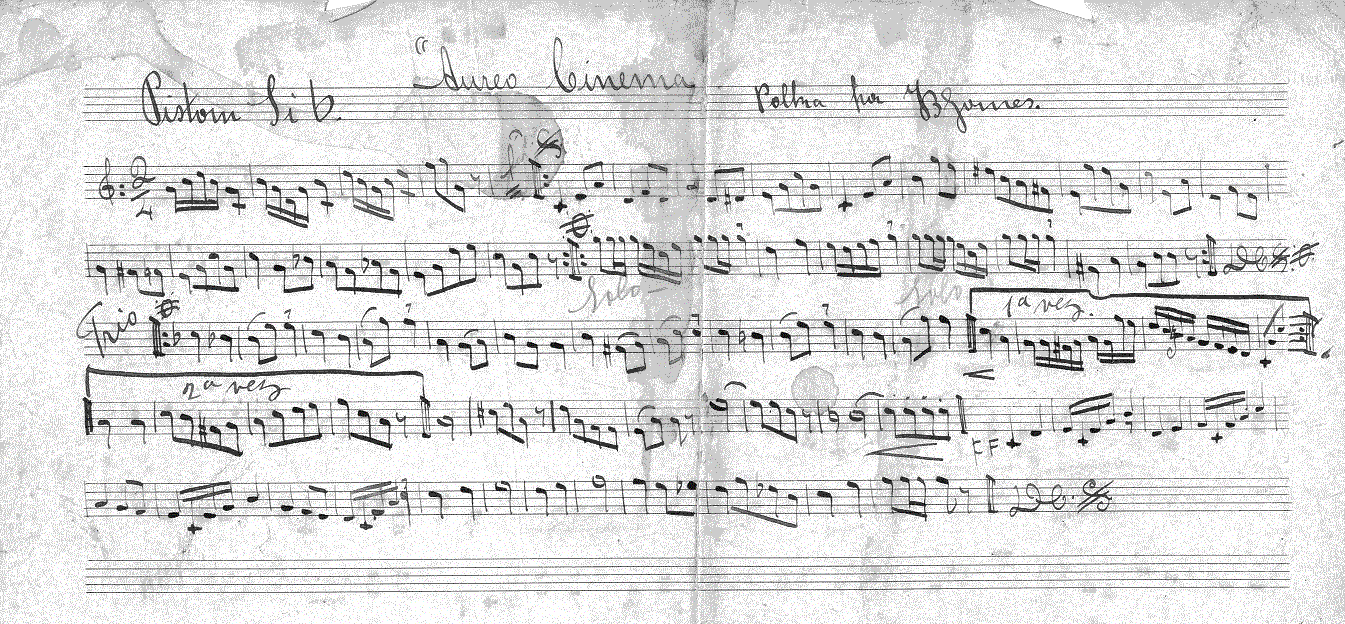 "Aureo Cinema
Pistom Si b.
Polka por B Gomes.
2/4
Solo
Solo
Trio
1ª vez.
2ª vez
FF